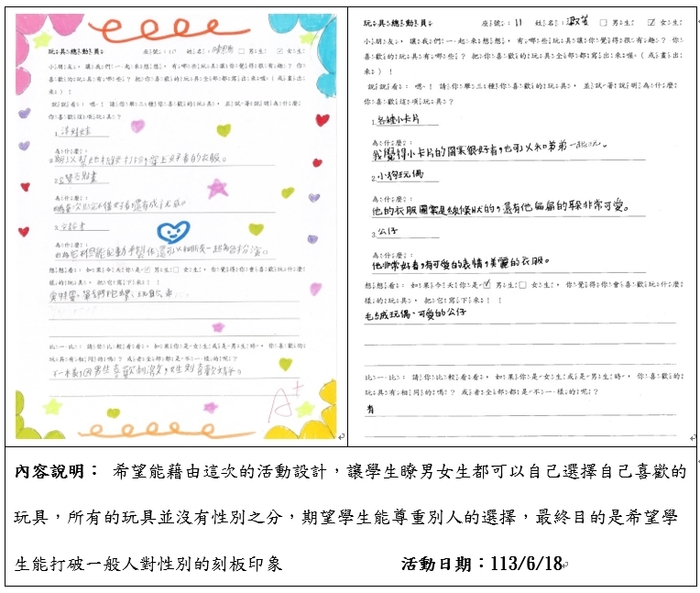 玩具總動員 座號:11 姓名: □男生 ☑女生
小朋友，讓我們一起來想想，有哪些玩具讓你覺得很有趣？你
喜歡的玩具有哪些？把你喜歡的玩具全部都寫出來喔。(或畫出
來)！
說說看：嗯！請你舉三種你喜歡的玩具，並試著說明為什麼
你喜歡這項玩具？
1.洋娃娃
為什麼：
為什麼：
為什麼：
想想看：如果今天你是☑男生□女生，你覺得你會喜歡玩什麼
樣的玩具，把它寫下來！
比一比：請你比較看看，如果你是女生或是男生時，你喜歡的
玩具有相同的嗎？或者全部都是不一樣的呢？
A+
玩具總動員 座號:11 姓名: □男生 ☑女生
小朋友，讓我們一起來想想，有哪些玩具讓你覺得很有趣？你
喜歡的玩具有哪些？把你喜歡的玩具全部都寫出來喔。(或畫出
來)！
說說看：嗯！請你舉三種你喜歡的玩具，並試著說明為什麼
你喜歡這項玩具？
1.各種小卡片
為什麼：
我覺得小卡片的圖案很好看，也可以和弟弟一起玩。
2.小狗玩偶
為什麼：
他的衣服圖案是線條狀的，還有他扁扁的臉非常可愛。
3.公仔
為什麼：
他非常好看，有可愛的表情，美麗的衣服。
想想看：如果今天你是☑男生□女生，你覺得你會喜歡玩什麼
樣的玩具，把它寫下來！
毛絨玩偶、可愛的公仔
比一比：請你比較看看，如果你是女生或是男生時，你喜歡的
玩具有相同的嗎？或者全部都是不一樣的呢？
有
內容說明： 希望能藉由這次的活動設計，讓學生瞭男女生都可以自己選擇自己喜歡的
玩具，所有的玩具並沒有性別之分，期望學生能尊重別人的選擇，最終目的是希望學
生能打破一般人對性別的刻板印象 活動日期：113/6/18